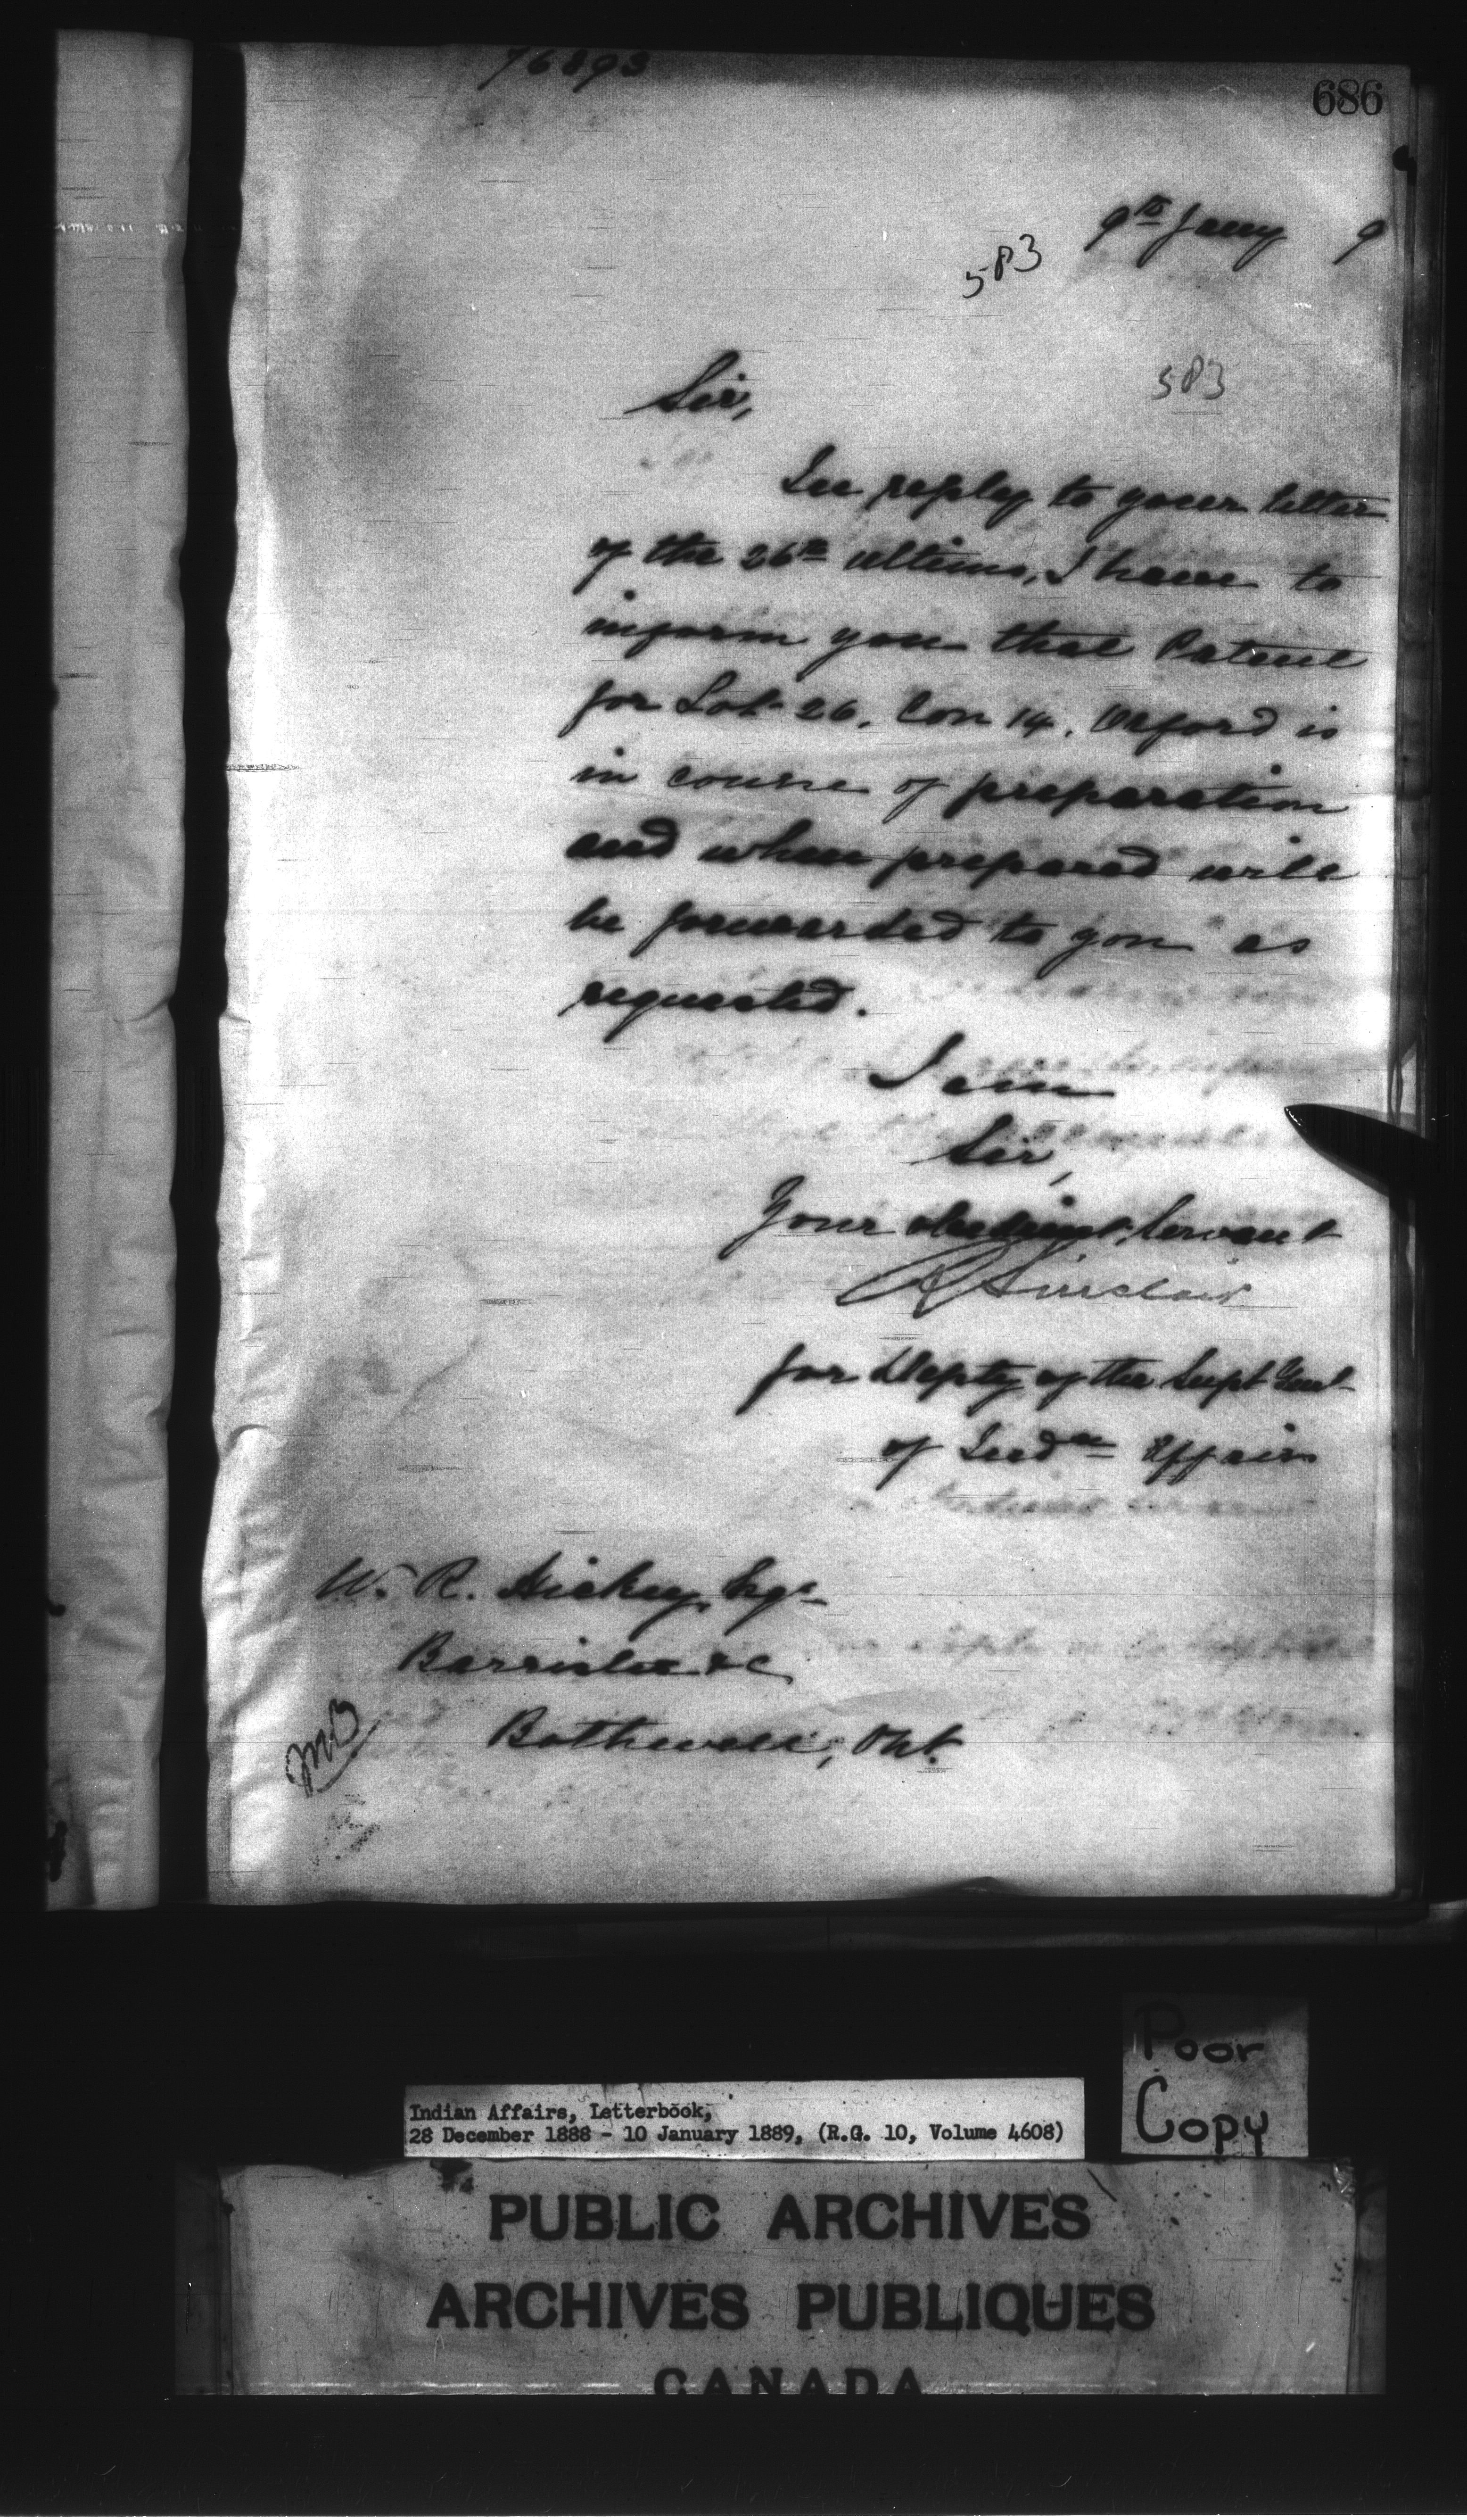 76893
686
9th Jany 9
583
583
Sir,
In reply to your letter
of the 26th ultimo, I have to
inform you that Patent
for Lot 26. Con 14. Orford is
in course of preparation
and when prepared will
be forwarded to you as
requested.
I am
Sir,
Your obedient Servant
R Sinclair
for Depty of the Supt Genl
of Indn Affairs
W. R. Hickey, Esqr
Barrister &c
Bothwell, Ont.
MB
Poor
Copy
Indian Affairs, Letterbook,
28 December 1888 - 10 January 1889, (R.G. 10, Volume 4608)
PUBLIC ARCHIVES
ARCHIVES PUBLIQUES
CANADA